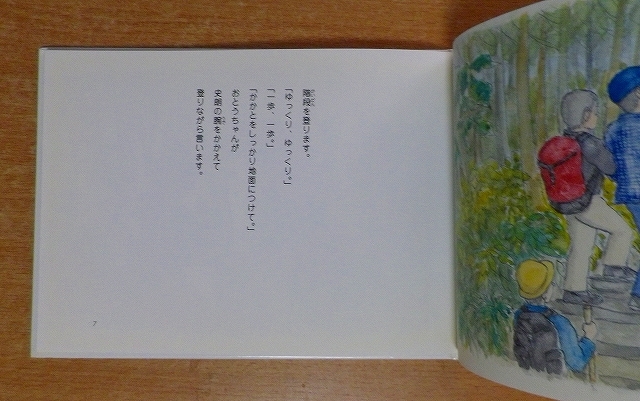 階段を登ります。
「ゆっくり、ゆっくり。」
「一歩、一歩。」
「かかとをしっかり地面につけて。」
おとうちゃんが
史朗の腕をかかえて
登りながら言います。
7